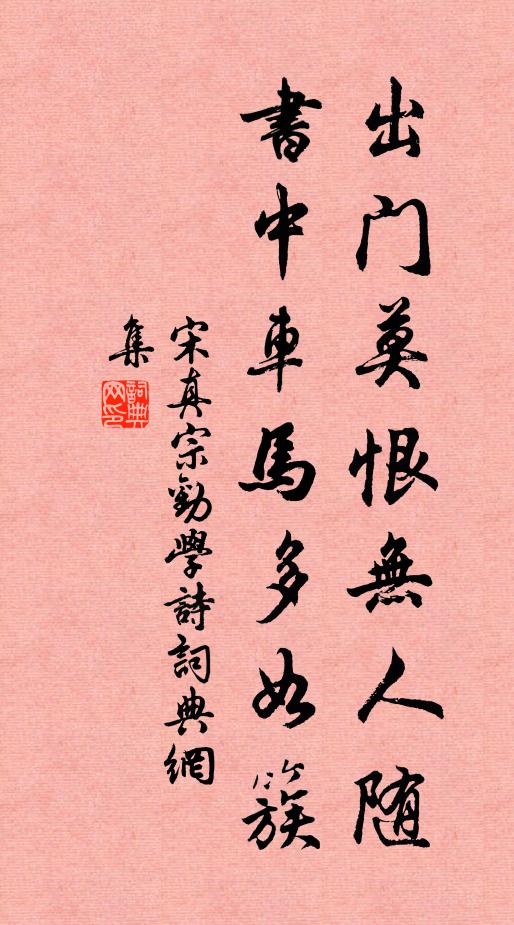 出门莫恨無人随
書中車馬多如簇
宋真宗勸學詩詞典網
集
詞典
网印